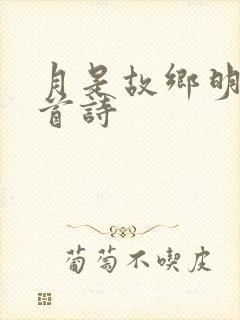 月是故鄉明
首詩
葡萄不喫皮